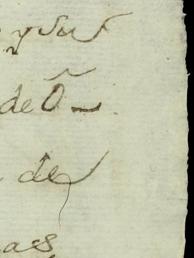 y sus
de Õ
de
as